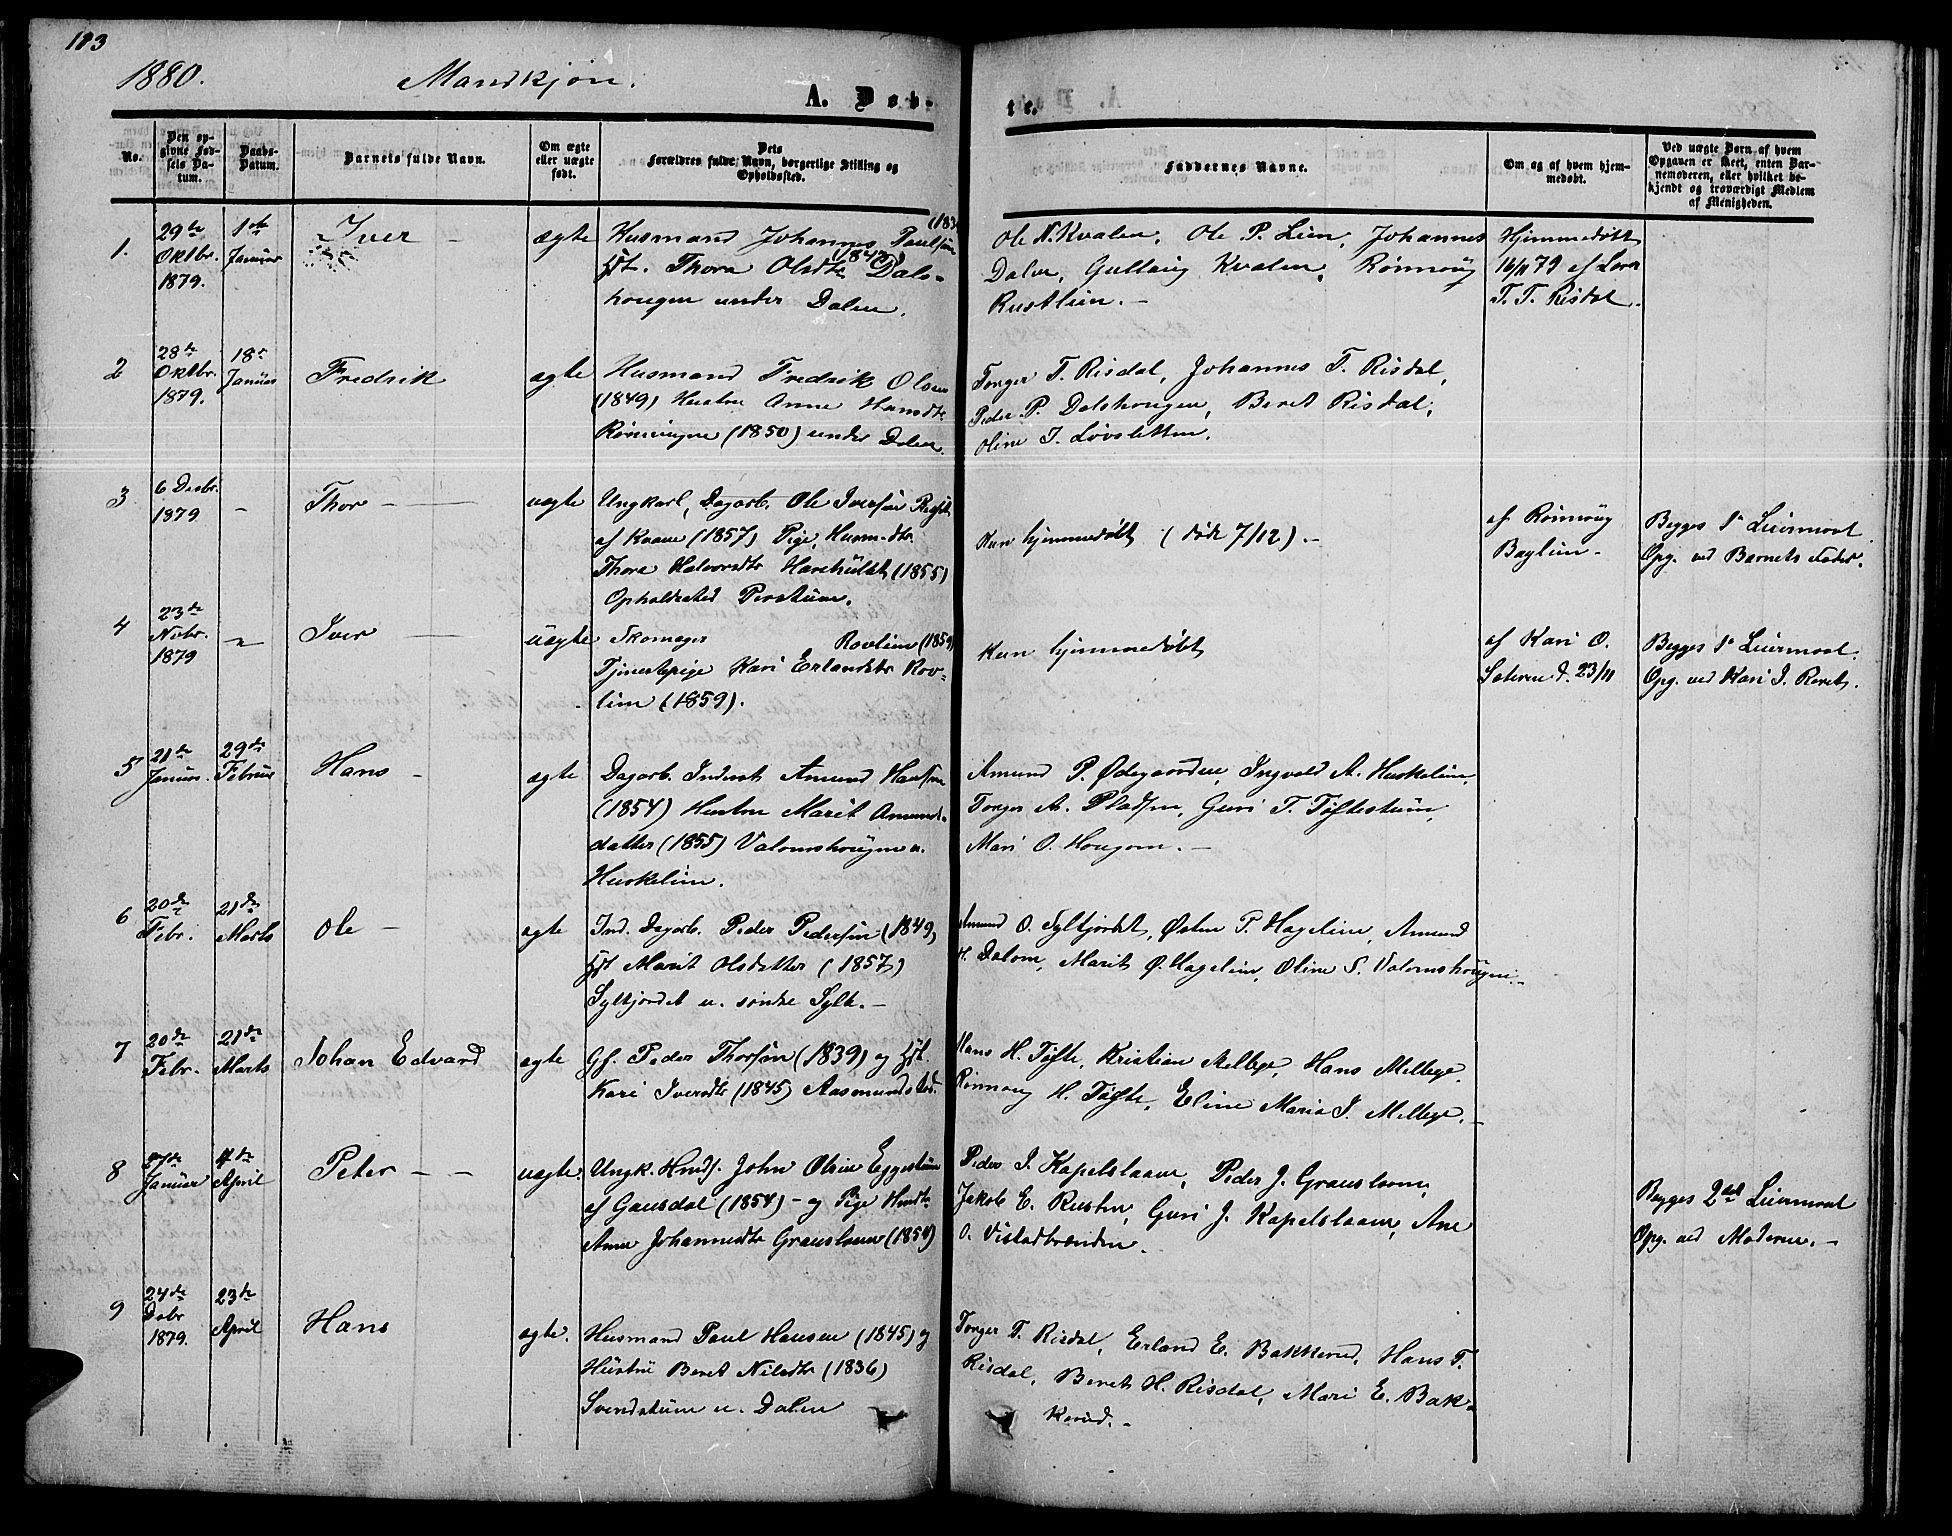 113
1880. Mandkjøn.
A. Døb- te.
No.
Den op-
givne Fød-
sels Da-
tum.
Daabs-
Datum.
Barnets fulde Navn.
Om ægte
eller uægte
født.
Dets
Forældres fulde Navn, borgerlige Stilling og
Opholdssted.
Faddernes Navne.
Om og af hvem hjem-
medøbt.
Ved uægte Børn af hvem
Opgaven er skeet, enten Bar-
nemoderen, eller hvilket be-
kjendt og troværdigt Medlem
af Menigheden.
1.
29de
Oktbr.
1879.
1ste
Januar
Iver
ægte
Husmand Johannes Paulsen
Hst. Thora Olsdtr (1842) Dals-
hougen under Dalen.
Ole N. Kvalen, Ole P. Lien, Johannes
Dalen, Gullaug Kvalen, Rønnaug
Rustlien.
Hjemmedøbt
16/11 79 af Lærer
T. T. Risdal.
2
28de
Oktbr.
1879.
18de
Januar
Fredrik
ægte
Husmand Fredrik Olsen
(1849) Hustru Anne Hansdtr
Rønningen (1850) under Dalen.
Torger T. Risdal, Johannes T. Risdal,
Peder P. Dalshougen, Beret Risdal,
Oline J. Løvsletten.
3
6 Decbr.
1879
-
Thor
uægte
Ungkarl, Dagarb. Ole Iversen
af Kvam (1857) Pige, Husm-dtr
Thora Halvorsdtr (1855)
Opholdssted Perstuen.
Kun hjemmedøbt (død 7/12).-
af Rønnaug
Baglien-
Begges 1ste Leiermaal
Opg. ved Barnets Fader.
4
23de
Novbr.
1879
-
Iver
uægte
Skomager Rovlien (1859)
Tjenestepige Kari Erlandsdtr Rov-
lien (1859).
Kun hjemmedøbt
af Kari O.
Sæteren d. 23/11
Begges 1ste Leiermaal.
Opg. ved Kari J.
5
21de
Januar.
29de
Februar
Hans
ægte
Dagarb. Inderst Amund Hansen
(1854) Hustru Marit Amunds-
datter (1855) Valomshougen u.
Huskelien.
Amund P. Ødegaarden, Ingvald A. Huskelien,
Torger A. Pladsen, Guri T. Tøftestuen,
Mari O. Hougom.
6
20de
Febr.
21de
Marts
Ole
ægte
Ind. Dagarb. Peder Pedersen (1849)
Hst Marit Olsdatter (1857)
Syltjordet u. søndre Sylte.-
Amund O. Syltjordet, Østen P. Hagelien, Amund
H. Dalom, Marit Ø. Hagelien, Oline S. Valomshougen.-
7
20de
Febr.
21de
Marts
Johan Edvard
ægte
Gf. Peder Thorsen (1839) og Hst.
Kari Iversdtr (1845) Aasmundstad.
Hans H. Tøfte, Kristian Mellege, Hans Mellege,
Rønnaug H. Tøfte, Eline Maria J. Mellege.-
8
27de
Januar
4de
April
Peter
uægte.
Ungk. Hmds. John Olsen Eggestuen
af Gausdal (1854) - og Pige Hmdtr
Anne Johannesdtr Grauslaaen (1854)
Peder J. Kapelslaaen, Peder J. Grauslaaen,
Jakob E. Rusten, Guri J. Kapelslaaen, Ane
O. Vistadbrænden.
Begges 2det Leiermaal
Opg. ved Moderen.-
9
24de
Debr
1879.
23de
April
Hans
ægte.
Husmand Paul Hansen (1845) og
Hustru Beret Nilsdtr (1836)
Svendstuen u. Dalen
Torger T. Risdal, Erland E. Bakkerud, Hans T.
Risdal, Beret H. Risdal, Mari E. Bak-
kerud.-